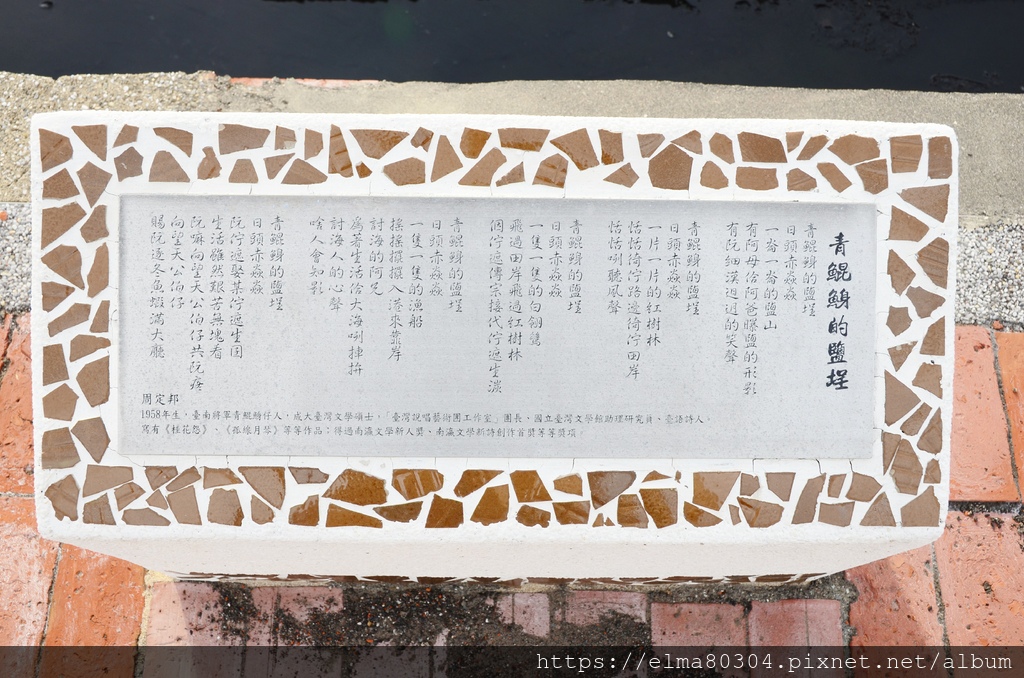 青鯤鯓的鹽埕
青鯤鯓的鹽埕
日頭赤焱焱
一崙一崙的鹽山
有阿母佮阿爸曝鹽的形影
有阮細漢𨑨迌的笑聲
青鯤鯓的鹽埕
日頭赤焱焱
一片一片的紅樹林
恬恬徛佇路邊徛佇田岸
恬恬咧聽風聲
青鯤鯓的鹽埕
日頭赤焱焱
一隻一隻的白翎鷥
飛過田岸飛過紅樹林
佪佇遮傳宗接代佇遮生湠
青鯤鯓的鹽埕
日頭赤焱焱
一隻一隻的漁船
搖搖擺擺入港來靠岸
討海的阿兄
為著生活佮大海咧捙拚
討海人的心聲
啥人會知影
青鯤鯓的鹽埕
日頭赤焱焱
阮佇遮娶某佇遮生囝
生活雖然艱苦無塊看
阮嘛向望天公伯仔共阮疼
向望天公伯仔
賜阮逐冬魚蝦滿大廳
周定邦
1958年生，臺南將軍青鯤鯓仔人，成大臺灣文學碩士，「臺灣說唱藝術團工作室」團長、國立臺灣文學館助理研究員、臺語詩人。
寫有《桂花怨》、《孤線月琴》等等作品；得過南瀛文學新人獎、南瀛文學新詩創作首獎等等獎項。
https://elma80304.pixnet.net/album